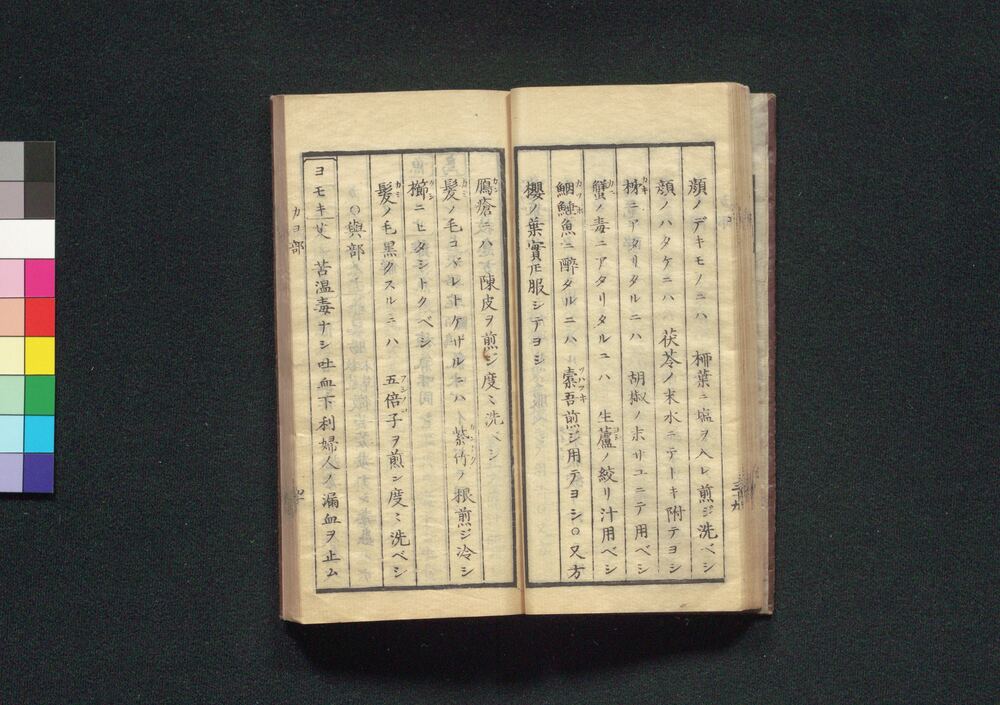 顔ノデキモノニハ 柳葉ニ塩ヲ入レ煎ジ洗ベシ
顔ノハタケニハ 茯苓ノ末水ニテトキ附テヨシ
ニアタリタルニハ 胡椒ノ末サユニテ用ベシ
蟹ノ毒ニアタリタルニハ 生蘆ノ絞リ汁用ベシ
魚ニ酔タルニハ 橐吾煎ジ用テヨシ○又方
櫻ノ葉實𪜈服シテヨシ
鴈瘡ニハ 陳皮ヲ煎ジ度〻洗ベシ
髪ノ毛コハレトケザルニハ 紫竹ノ根煎ジ冷シ
櫛ニヒタシトクベシ
髪ノ毛黒クスルニハ 五倍子ヲ煎ジ度〻洗ベシ
○與部
ヨモキ 艾 苦温毒ナシ吐血下利婦人ノ漏血ヲ止ム
カヨ部
三十九